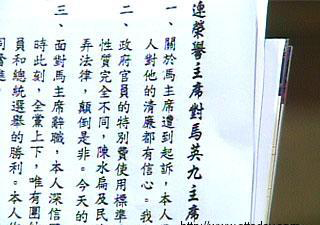 連榮譽主席對馬英九主席
一、關於馬主席遭到起訴，本人
人對他的清廉都有信心。我
二、政府官員的特別費使用標準
性質完全不同，陳水扁及民
弄法律，顛倒是非。今天的
三、面對馬主席辭職，本人深信
時此刻，全黨上下，唯有團
員和總統選舉的勝利。本人